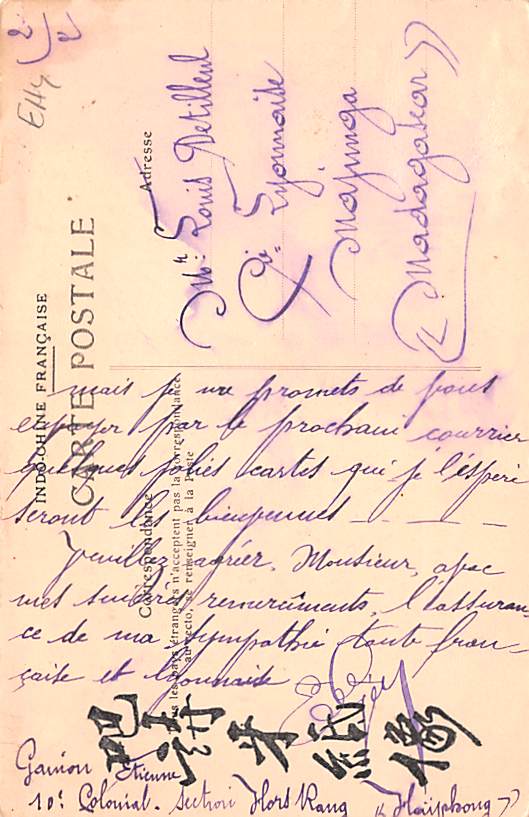 2/2
INDO-CHINE FRANÇAISE
CARTE POSTALE
Correspondance
Tous les pays étrangers n'acceptent pas la correspondance
au recto, se renseigner à la Poste
Adresse
Mr. Louis Detilleul
Cie. Lyonnaise
Majunga
« Madagaskar »
mais je me promets de vous
envoyer par le prochain courrier
quelques jolies cartes qui je l'éspère
seront les bienvenues
Veuillez agréer, Monsieur, avec
mes sincères remerciements, l'assuran-
ce de ma sympathie toute fran-
çaise et lyonnaise
Gamon Etienne
10e Colonial. Section Hors Rang « Haïphong »